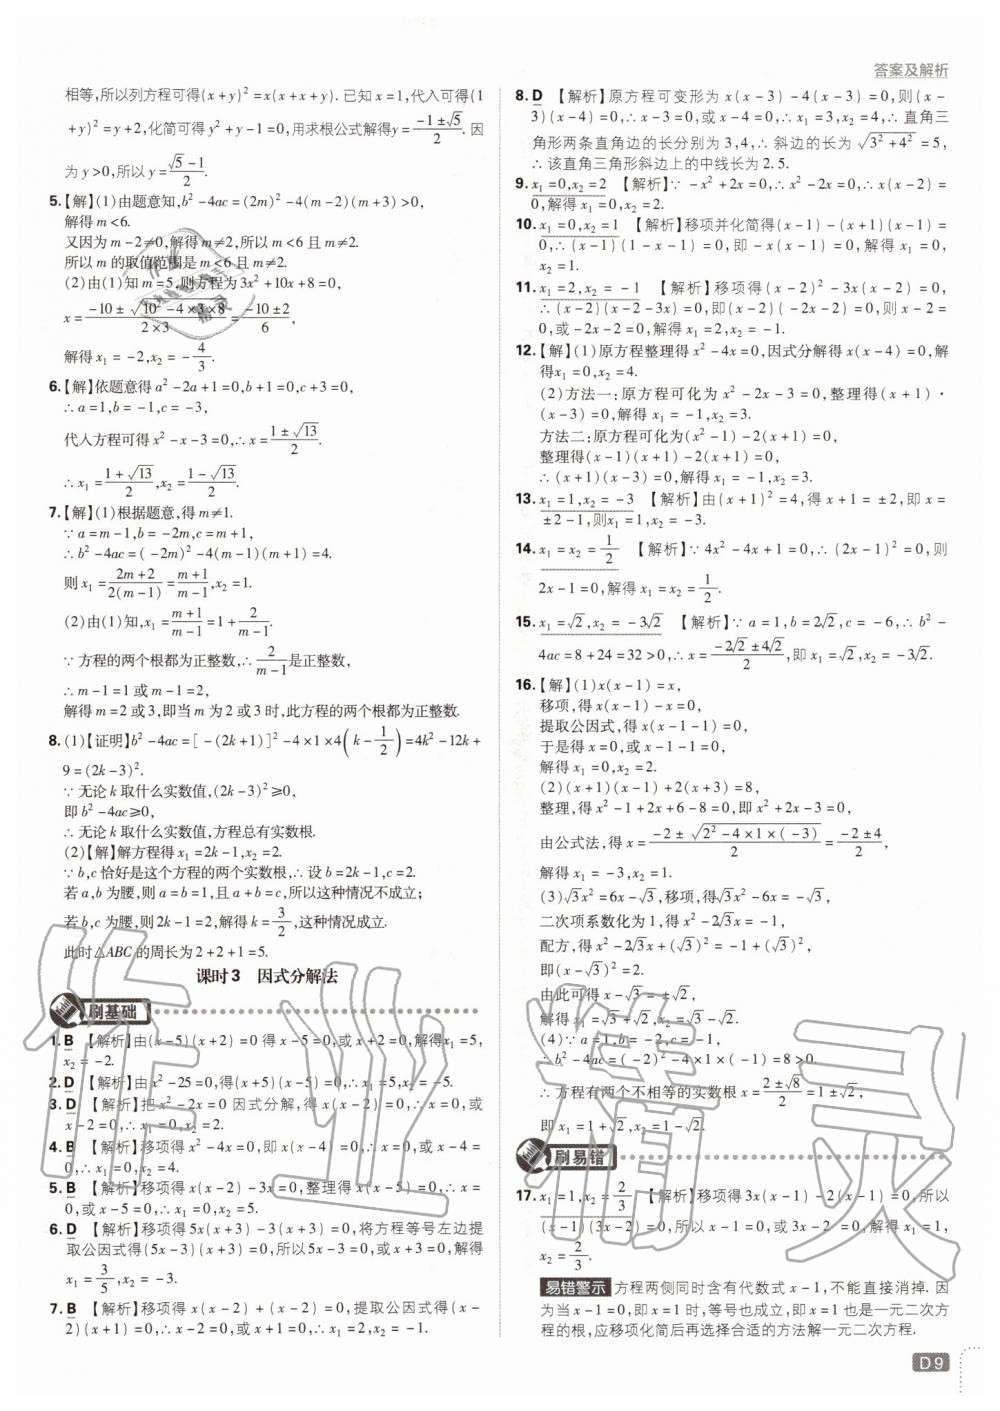 答案及解析
相等,所以列方程可得(x+y)²=x(x+x+y). 已知x=1,代入可得(1
+y)²=y+2,化简可得y²+y-1=0,用求根公式解得y=(-1±√5)/2. 因
为y>0,所以y=(√5-1)/2.
5.【解】(1)由题意知,b²-4ac=(2m)²-4(m-2)(m+3)>0,
解得m<6.
又因为m-2≠0,解得m≠2,所以m<6且m≠2.
所以m的取值范围是m<6且m≠2.
(2)由(1)知m=5,则方程为3x²+10x+8=0,
x=(-10±√(10²-4×3×8))/(2×3)=(-10±2)/6,
解得x₁=-2,x₂=-4/3.
6.【解】依题意得a²-2a+1=0,b+1=0,c+3=0,
∴a=1,b=-1,c=-3,
代入方程可得x²-x-3=0,∴x=(1±√13)/2.
∴x₁=(1+√13)/2,x₂=(1-√13)/2.
7.【解】(1)根据题意,得m≠1.
∵a=m-1,b=-2m,c=m+1,
∴b²-4ac=(-2m)²-4(m-1)(m+1)=4.
则x₁=(2m+2)/(2(m-1))=(m+1)/(m-1),x₂=1.
(2)由(1)知,x₁=(m+1)/(m-1)=1+2/(m-1).
∵方程的两个根都为正整数,∴2/(m-1)是正整数,
∴m-1=1或m-1=2,
解得m=2或3,即当m为2或3时,此方程的两个根都为正整数.
8.(1)【证明】b²-4ac=[-(2k+1)]²-4×1×4(k-1/2)=4k²-12k+
9=(2k-3)².
∵无论k取什么实数值,(2k-3)²≥0,
即b²-4ac≥0,
∴无论k取什么实数值,方程总有实数根.
(2)【解】解方程得x₁=2k-1,x₂=2.
∵b,c恰好是这个方程的两个实数根,∴设b=2k-1,c=2.
若a,b为腰,则a=b=1,且a+b=c,所以这种情况不成立;
若b,c为腰,则2k-1=2,解得k=3/2,这种情况成立.
此时△ABC的周长为2+2+1=5.
课时3 因式分解法
刷基础
1. B 【解析】由(x-5)(x+2)=0得x-5=0,或x+2=0,解得x₁=5,
x₂=-2.
2. D 【解析】由x²-25=0,得(x+5)(x-5)=0,∴x₁=5,x₂=-5.
3. D 【解析】把x²-2x=0因式分解,得x(x-2)=0,∴x=0,或
x-2=0,∴x₁=0,x₂=2.
4. B 【解析】移项得x²-4x=0,即x(x-4)=0,∴x=0,或x-4=0,
∴x₁=0,x₂=4.
5. B 【解析】移项得x(x-2)-3x=0,整理得x(x-5)=0,∴x=
0,或x-5=0,∴x₁=0,x₂=5.
6. D 【解析】移项得5x(x+3)-3(x+3)=0,将方程等号左边提
取公因式得(5x-3)(x+3)=0,所以5x-3=0,或x+3=0,解得
x₁=3/5,x₂=-3.
7. B 【解析】移项得x(x-2)+(x-2)=0,提取公因式得(x-
2)(x+1)=0,∴x-2=0,或x+1=0,∴x₁=2,x₂=-1.
8. D 【解析】原方程可变形为x(x-3)-4(x-3)=0,则(x-
3)(x-4)=0,∴x-3=0,或x-4=0,∴x₁=3,x₂=4,∴直角三
角形两条直角边的长分别为3,4,∴斜边的长为√(3²+4²)=5,
∴该直角三角形斜边上的中线长为2.5.
9. x₁=0,x₂=2 【解析】∵-x²+2x=0,∴x²-2x=0,∴x(x-2)=
0,解得x₁=0,x₂=2.
10. x₁=0,x₂=1 【解析】移项并化简得(x-1)-(x+1)(x-1)=
0,∴(x-1)(1-x-1)=0,即-x(x-1)=0,解得x₁=0,
x₂=1.
11. x₁=2,x₂=-1 【解析】移项得(x-2)²-3x(x-2)=0,
∴(x-2)(x-2-3x)=0,即(x-2)(-2x-2)=0,则x-2=
0,或-2x-2=0,解得x₁=2,x₂=-1.
12.【解】(1)原方程整理得x²-4x=0,因式分解得x(x-4)=0,解
得x₁=0,x₂=4.
(2)方法一:原方程可化为x²-2x-3=0,整理得(x+1)·
(x-3)=0,解得x₁=-1,x₂=3.
方法二:原方程可化为(x²-1)-2(x+1)=0,
整理得(x-1)(x+1)-2(x+1)=0,
∴(x+1)(x-3)=0,解得x₁=-1,x₂=3.
13. x₁=1,x₂=-3 【解析】由(x+1)²=4,得x+1=±2,即x=
±2-1,则x₁=1,x₂=-3.
14. x₁=x₂=1/2 【解析】∵4x²-4x+1=0,∴(2x-1)²=0,则
2x-1=0,解得x₁=x₂=1/2.
15. x₁=√2,x₂=-3√2 【解析】∵a=1,b=2√2,c=-6,∴b²-
4ac=8+24=32>0,∴x=(-2√2±4√2)/2,即x₁=√2,x₂=-3√2.
16.【解】(1)x(x-1)=x,
移项,得x(x-1)-x=0,
提取公因式,得x(x-1-1)=0,
于是得x=0,或x-1-1=0,
解得x₁=0,x₂=2.
(2)(x+1)(x-1)+2(x+3)=8,
整理,得x²-1+2x+6-8=0,即x²+2x-3=0,
由公式法,得x=(-2±√(2²-4×1×(-3)))/2=(-2±4)/2,
解得x₁=-3,x₂=1.
(3)√3x²=6x-√3,移项,得√3x²-6x=-√3,
二次项系数化为1,得x²-2√3x=-1,
配方,得x²-2√3x+(√3)²=-1+(√3)²,
即(x-√3)²=2.
由此可得x-√3=±√2,
解得x₁=√3+√2,x₂=√3-√2.
(4)∵a=1,b=-2,c=-1,
∴b²-4ac=(-2)²-4×1×(-1)=8>0,
∴方程有两个不相等的实数根x=(2±√8)/2=1±√2,
即x₁=1+√2,x₂=1-√2.
刷易错
17. x₁=1,x₂=2/3 【解析】移项得3x(x-1)-2(x-1)=0,所以
(x-1)(3x-2)=0,所以x-1=0,或3x-2=0,解得x₁=1,
x₂=2/3.
易错警示 方程两侧同时含有代数式x-1,不能直接消掉. 因
为当x-1=0,即x=1时,等号也成立,即x=1也是一元二次方
程的根,应移项化简后再选择合适的方法解一元二次方程.
D9
作业精灵